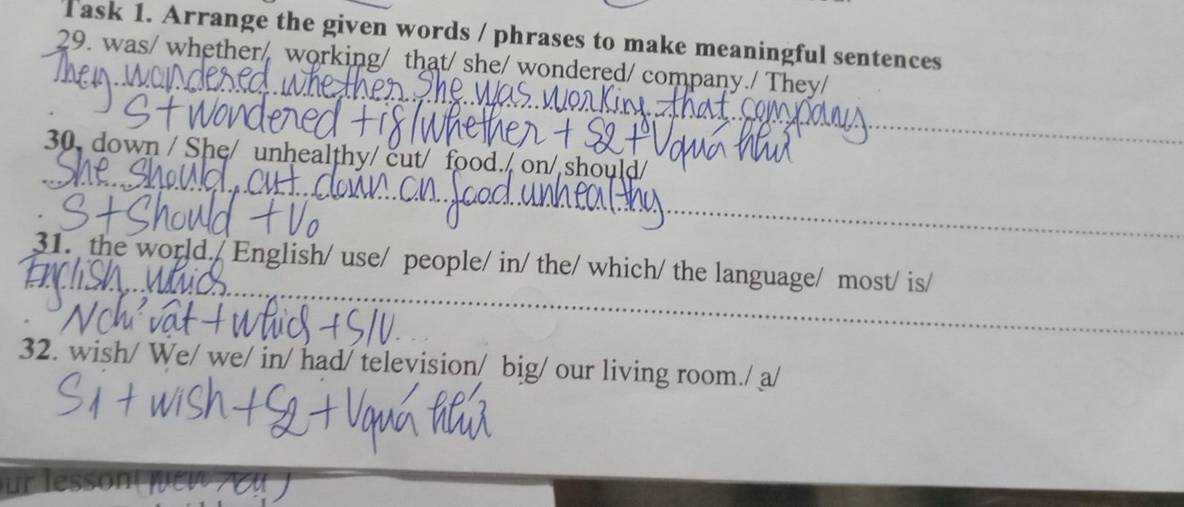 Task 1. Arrange the given words / phrases to make meaningful sentences
29. was/ whether/ working/ that/ she/ wondered/ company./ They/
They wondered whether she was working that company
S + wondered + if/whether + S2 + V quá khứ
30. down / She/ unhealthy/ cut/ food./ on/ should/
She should cut down on food unhealthy
S + Should + Vo
31. the world./ English/ use/ people/ in/ the/ which/ the language/ most/ is/
English which
N chỉ vật + which + S/V...
32. wish/ We/ we/ in/ had/ television/ big/ our living room./ a/
S1 + wish + S2 + V quá khứ
ur lesson